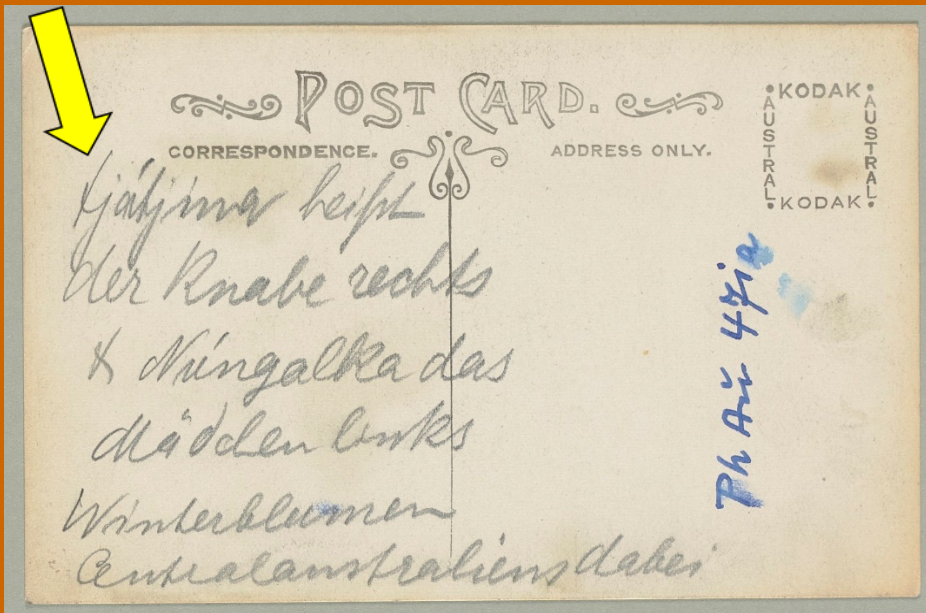 POST CARD.
CORRESPONDENCE.
ADDRESS ONLY.
KODAK
AUSTRAL
AUSTRAL
KODAK
tjátjina heißt
der Knabe rechts
& Núngalka das
Mädchen links
Winterblumen
Centralaustraliens dabei
Ph Au 47ia